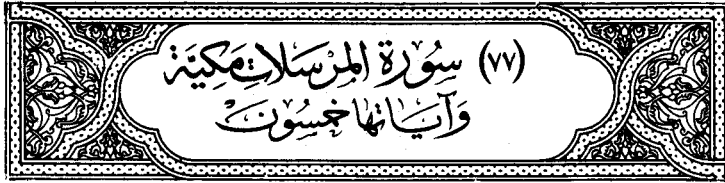 (٧٧) سُورَة المُرسَلات مَكيَّة
وَآيَاتُهَا خَمسُونَ